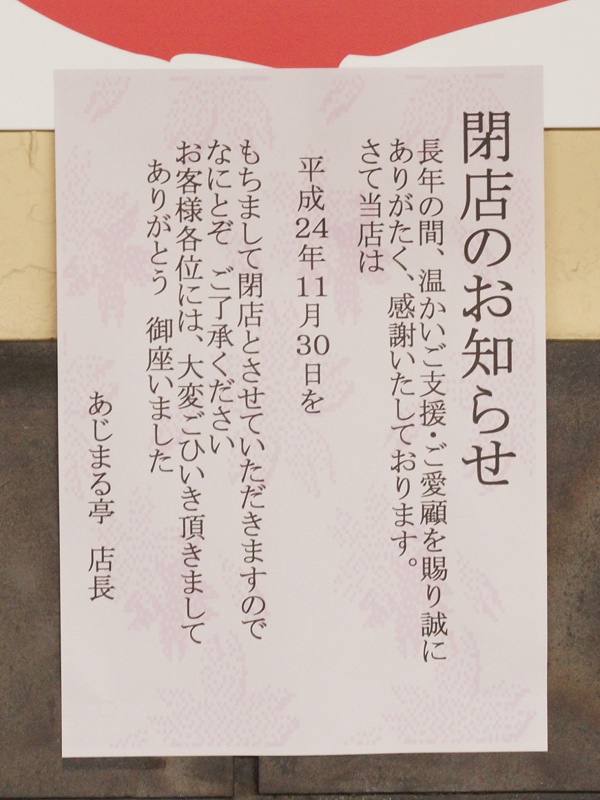 閉店のお知らせ
長年の間、温かいご支援・ご愛顧を賜り誠に
ありがたく、感謝いたしております。
さて当店は
平成24年11月30日を
もちまして閉店とさせていただきますので
なにとぞ　ご了承ください
お客様各位には、大変ごひいき頂きまして
ありがとう　御座いました
あじまる亭　店長